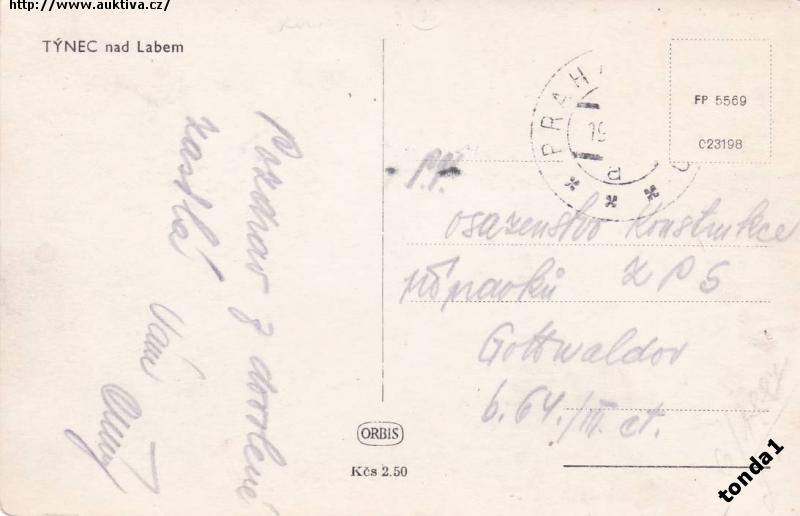 http://www.auktiva.cz/
TÝNEC nad Labem
Pozdrav z dovolené
zasílá
Vám
PRAHA
FP 5569
C23198
osazenstvo konstrukce
přípravků ZPS
Gottwaldov
b. 64./III. et.
ORBIS
Kčs 2.50
tonda1